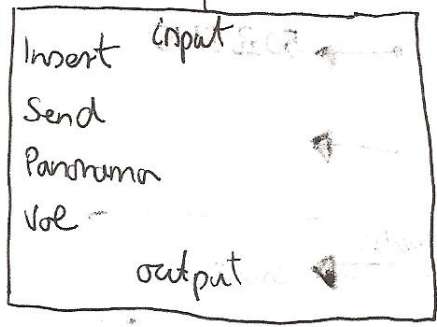 input
Insert
Send
Panorama
Vol
output